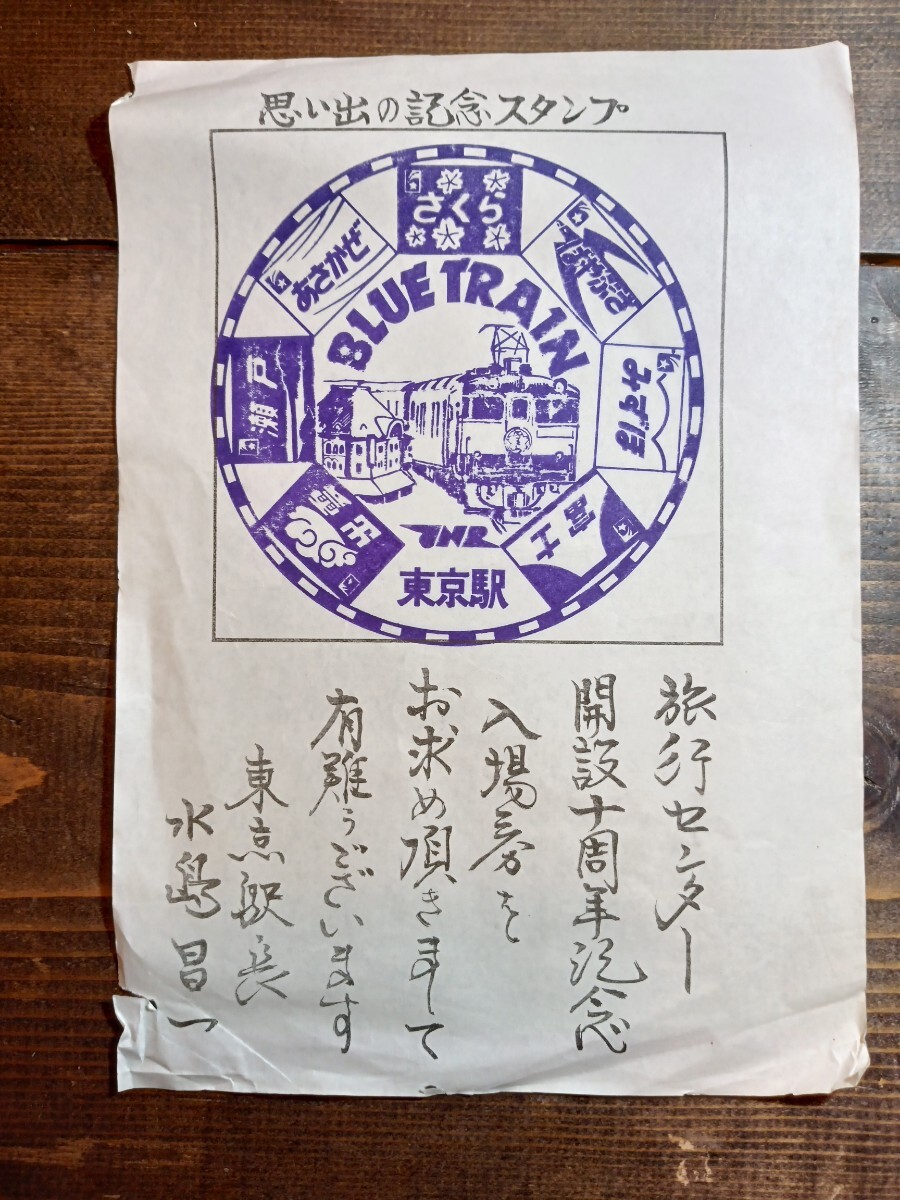 思い出の記念スタンプ
さくら
あさかぜ
はやぶさ
BLUE TRAIN
瀬戸
みずほ
出雲
富士
JNR
東京駅
旅行センター
開設十周年記念
入場券を
お求め頂きまして
有難うございます
東京駅長
水島昌一